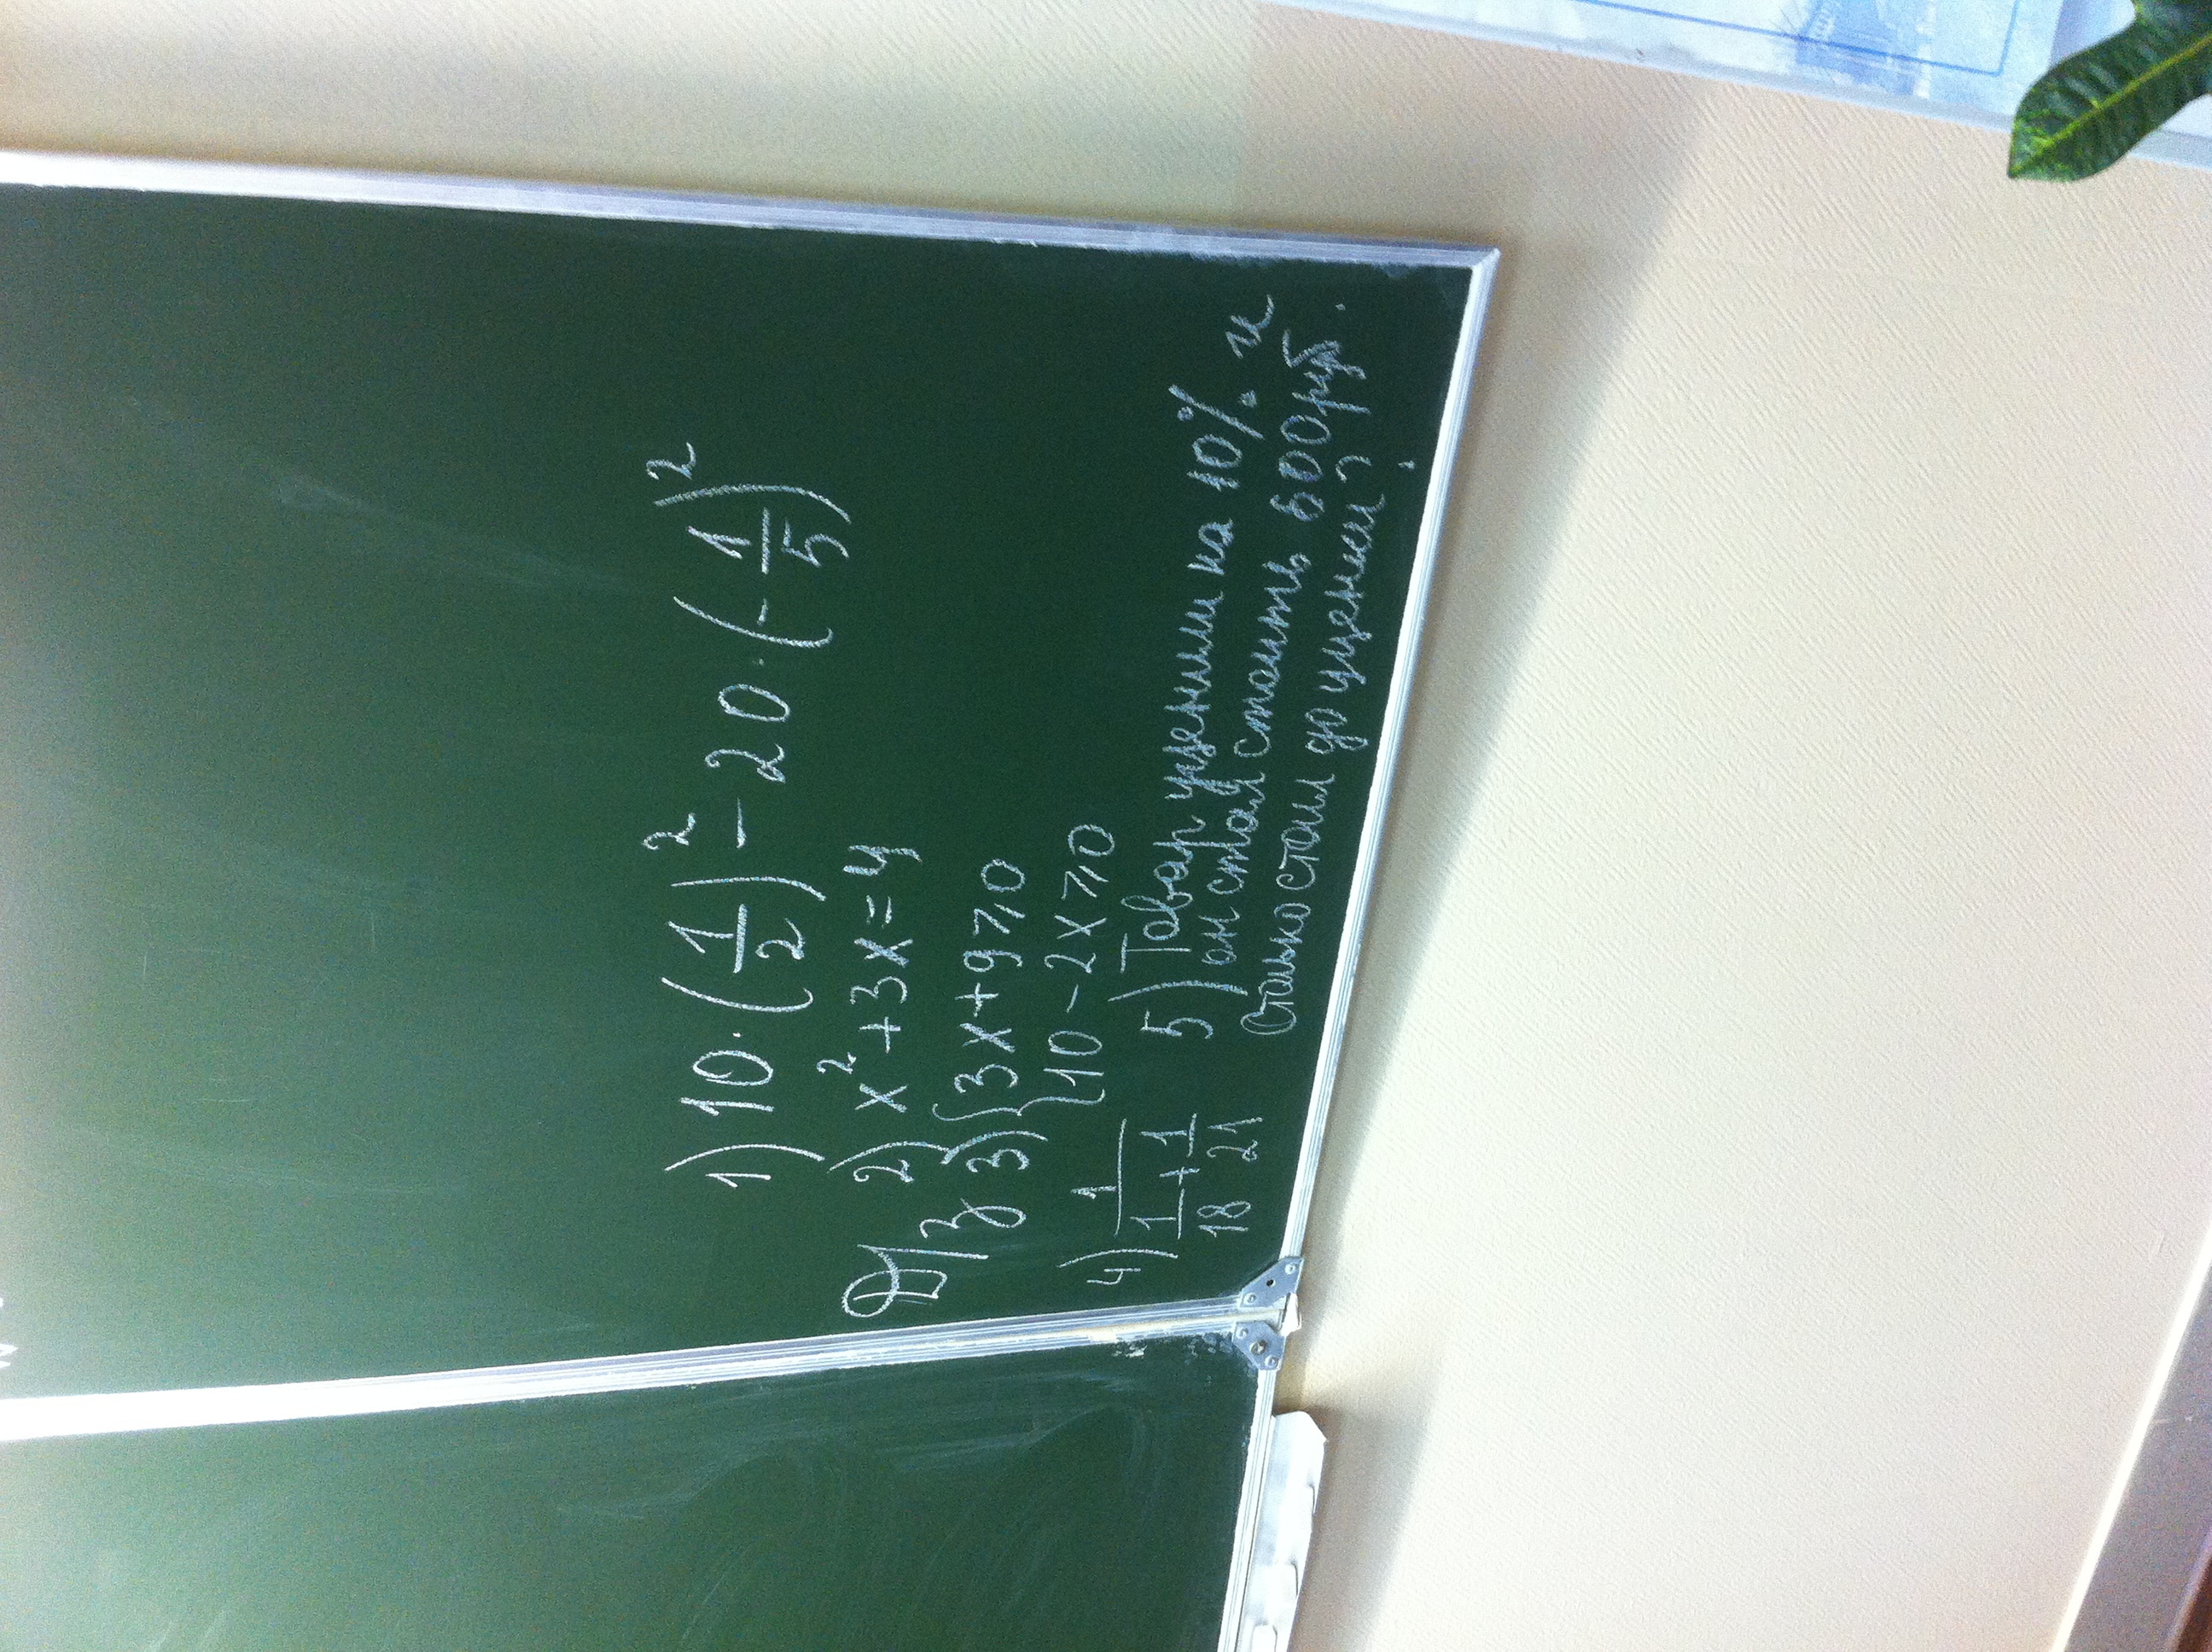 1) 10·(1/2)² - 20·(-1/5)²
2) x² + 3x = 4
Д/З 3) { 3x + 9 ⩾ 0
{ 10 - 2x ⩾ 0
4) 1/(1/18 + 1/21)
5) Товар уценили на 10% и
он стал стоить 600 руб.
Сколько стоил до уценки?